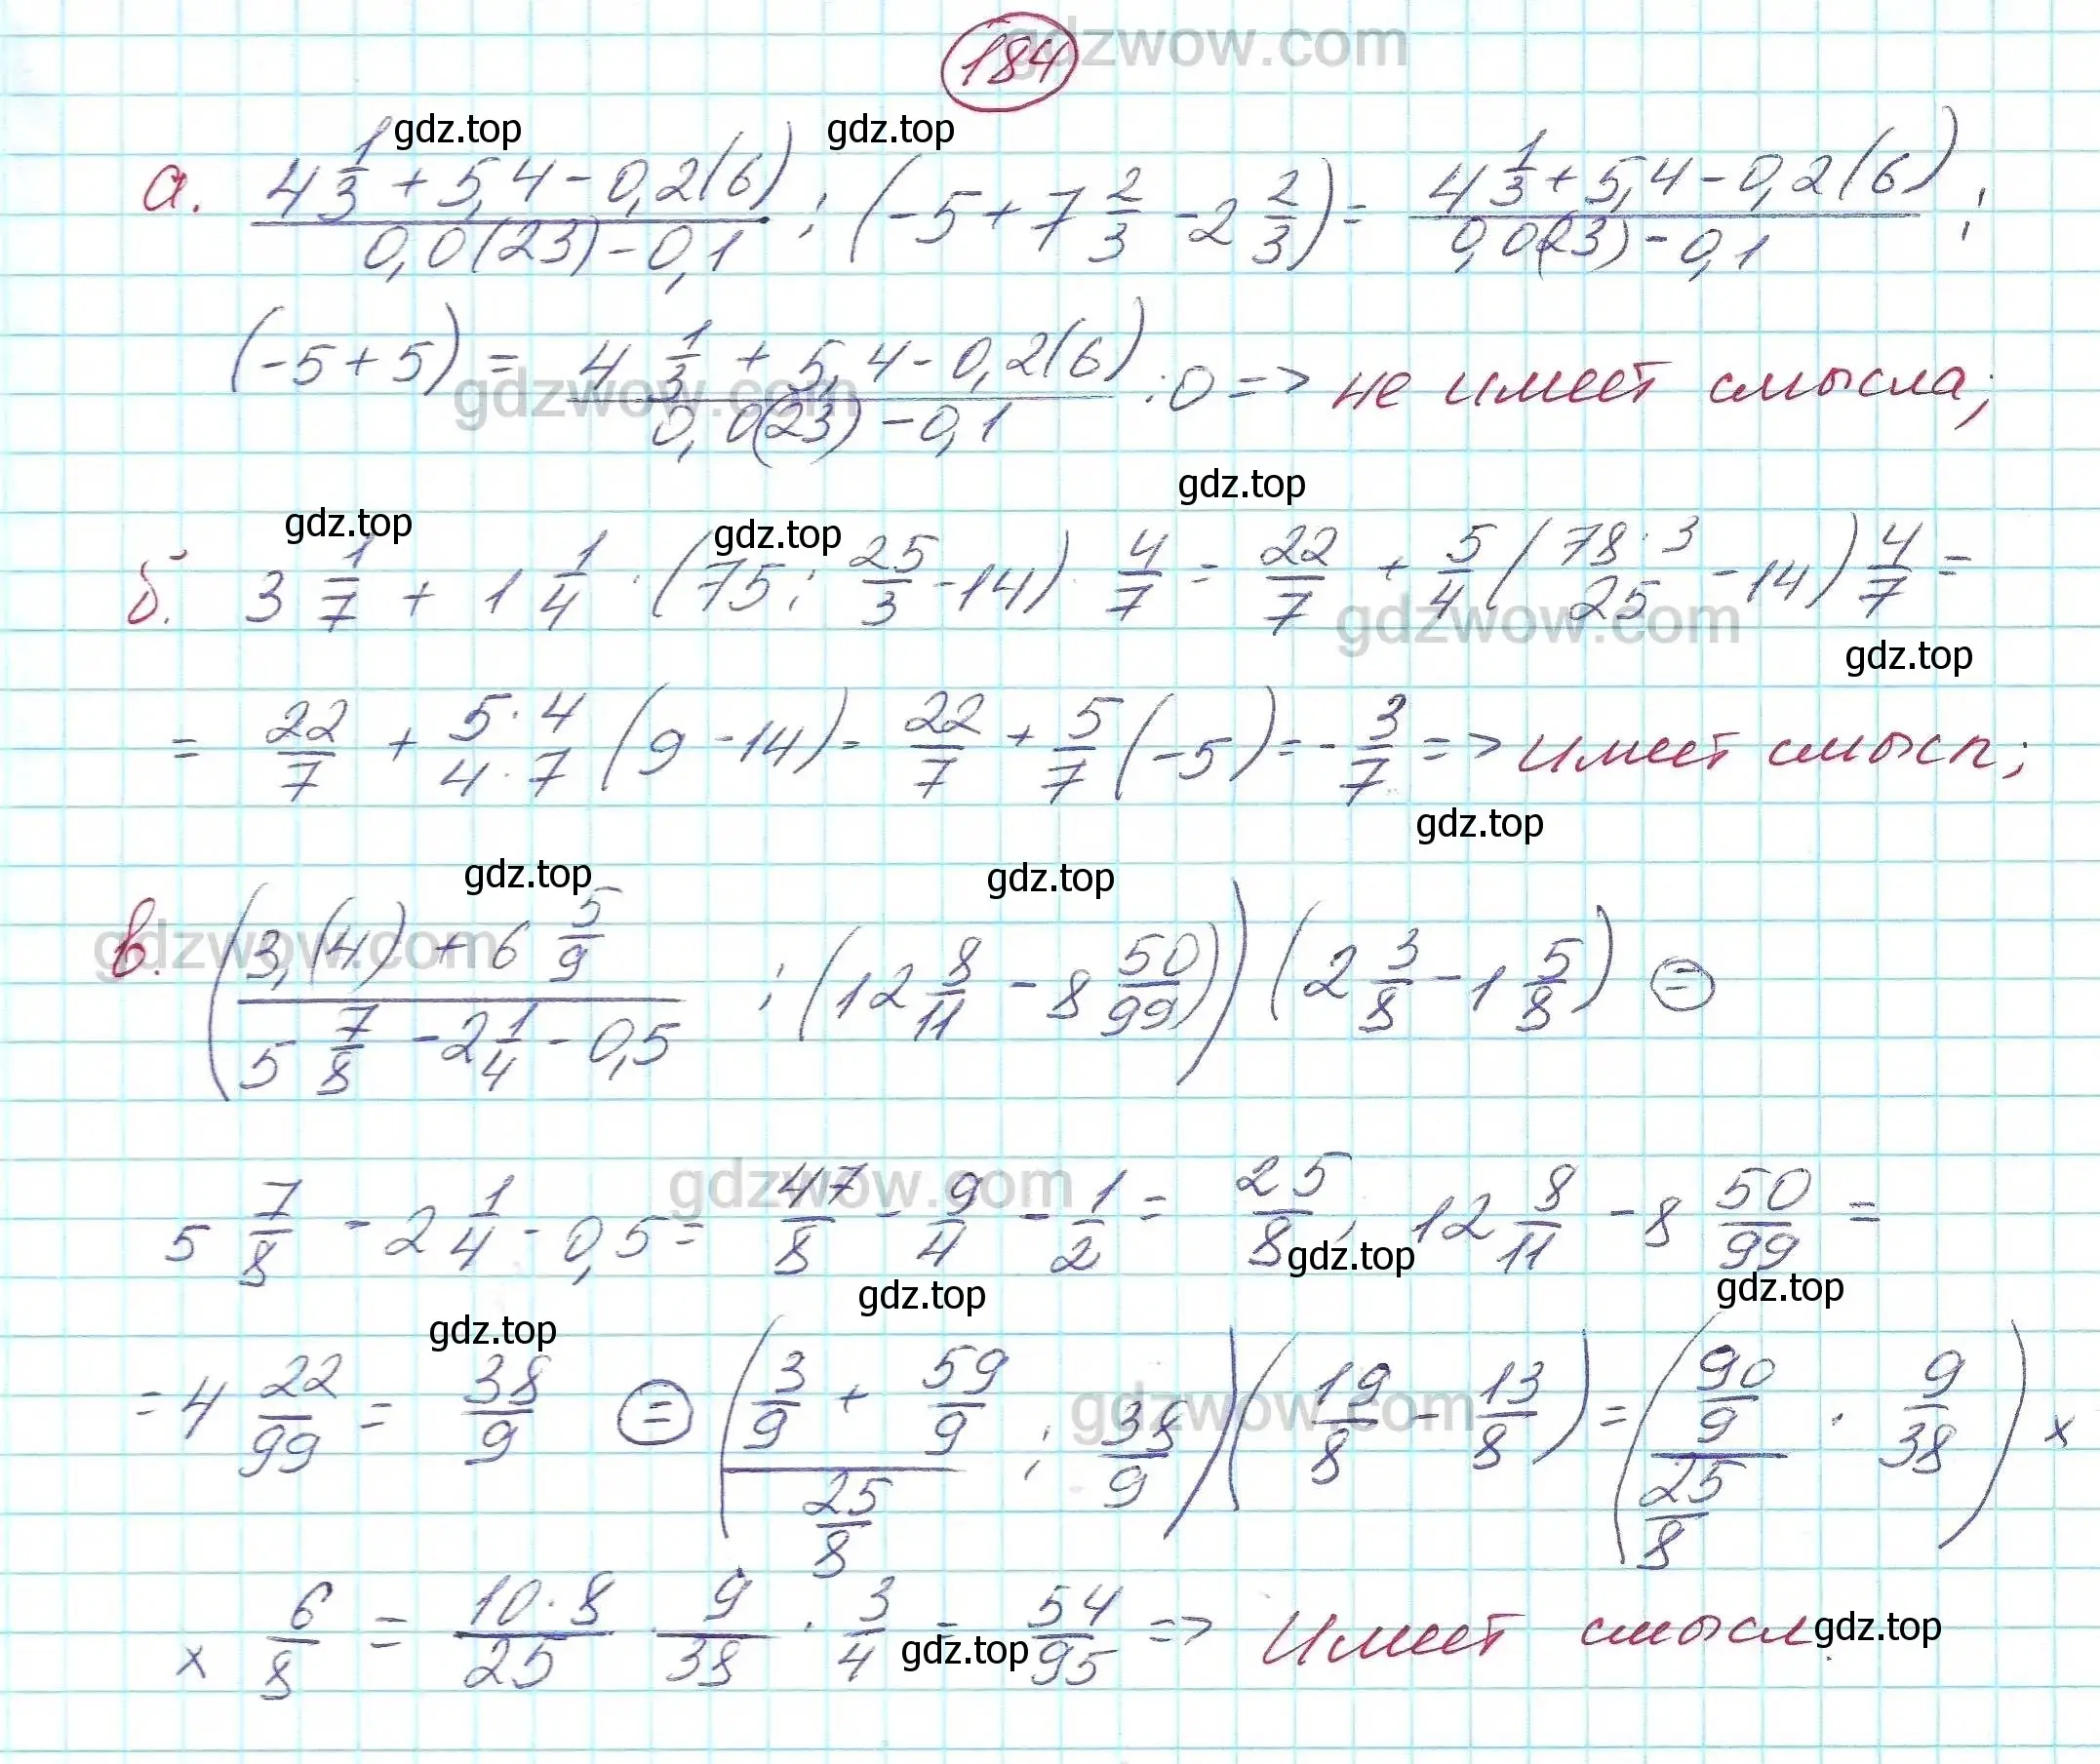 184
gdzwow.com
gdz.top gdz.top
а. (4 1/3 + 5,4 - 0,2(6))/(0,0(23) - 0,1) : (-5 + 7 2/3 - 2 2/3) = (4 1/3 + 5,4 - 0,2(6))/(0,0(23) - 0,1) :
(-5 + 5) = (4 1/3 + 5,4 - 0,2(6))/(0,0(23) - 0,1) : 0 => не имеет смысла;
gdzwow.com
gdz.top
gdz.top gdz.top
б. 3 1/7 + 1 1/4 · (75 : 25/3 - 14) · 4/7 = 22/7 + 5/4 (78 · 3/25 - 14) 4/7 =
gdzwow.com
gdz.top
= 22/7 + 5·4/4·7 (9 - 14) = 22/7 + 5/7 (-5) = - 3/7 => имеет смысл;
gdz.top
gdz.top gdz.top
в. ((3,(4) + 6 5/9)/(5 7/8 - 2 1/4 - 0,5) : (12 8/11 - 8 50/99)) (2 3/8 - 1 5/8) =
gdzwow.com
gdzwow.com
5 7/8 - 2 1/4 - 0,5 = 47/8 - 9/4 - 1/2 = 25/8; 12 8/11 - 8 50/99 =
gdz.top
gdz.top gdz.top
gdz.top
= 4 22/99 = 38/9 = ((3/9 + 59/9)/(25/8) : 38/9) (19/8 - 13/8) = ((90/9)/(25/8) · 9/38) ×
gdzwow.com
× 6/8 = 10·8/25 · 9/38 · 3/4 = 54/95 => Имеет смысл.
gdz.top gdz.top